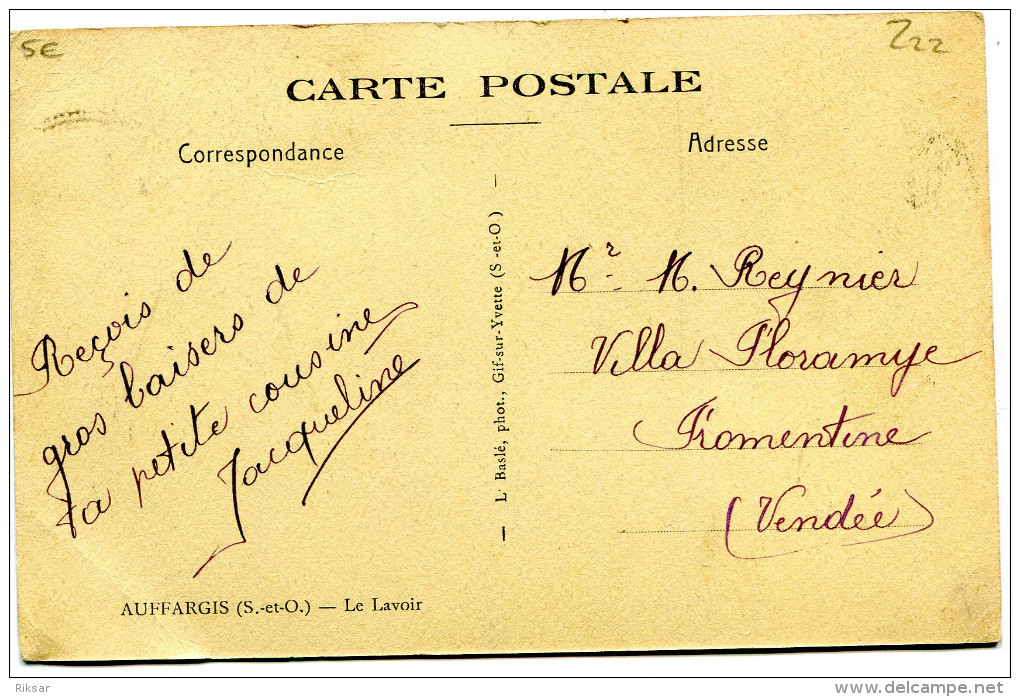 5E
Z22
CARTE POSTALE
Correspondance
Adresse
Reçois de
gros baisers de
ta petite cousine
Jacqueline
L. Baslé, phot., Gif-sur-Yvette (S-et-O)
Mr. M. Reynier
Villa Floramye
Fromentine
(Vendée)
AUFFARGIS (S.-et-O.) — Le Lavoir
Riksar
www.delcampe.net